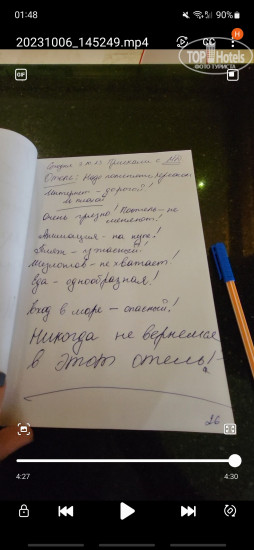 01:48
90%
20231006_145249.mp4
H
TOP Hotels
ФОТО ТУРИСТА
GIF
Отель:
Интернет - дорогой!
и плохой
Очень грязно! Постель - не
меняют!
Анимация - на нуле!
Пляж - ужасный!
Шезлонгов - не хватает!
Еда - однообразная!
Вход в море - опасный!
Никогда не вернемся
в этот отель!
26
4:27
4:30